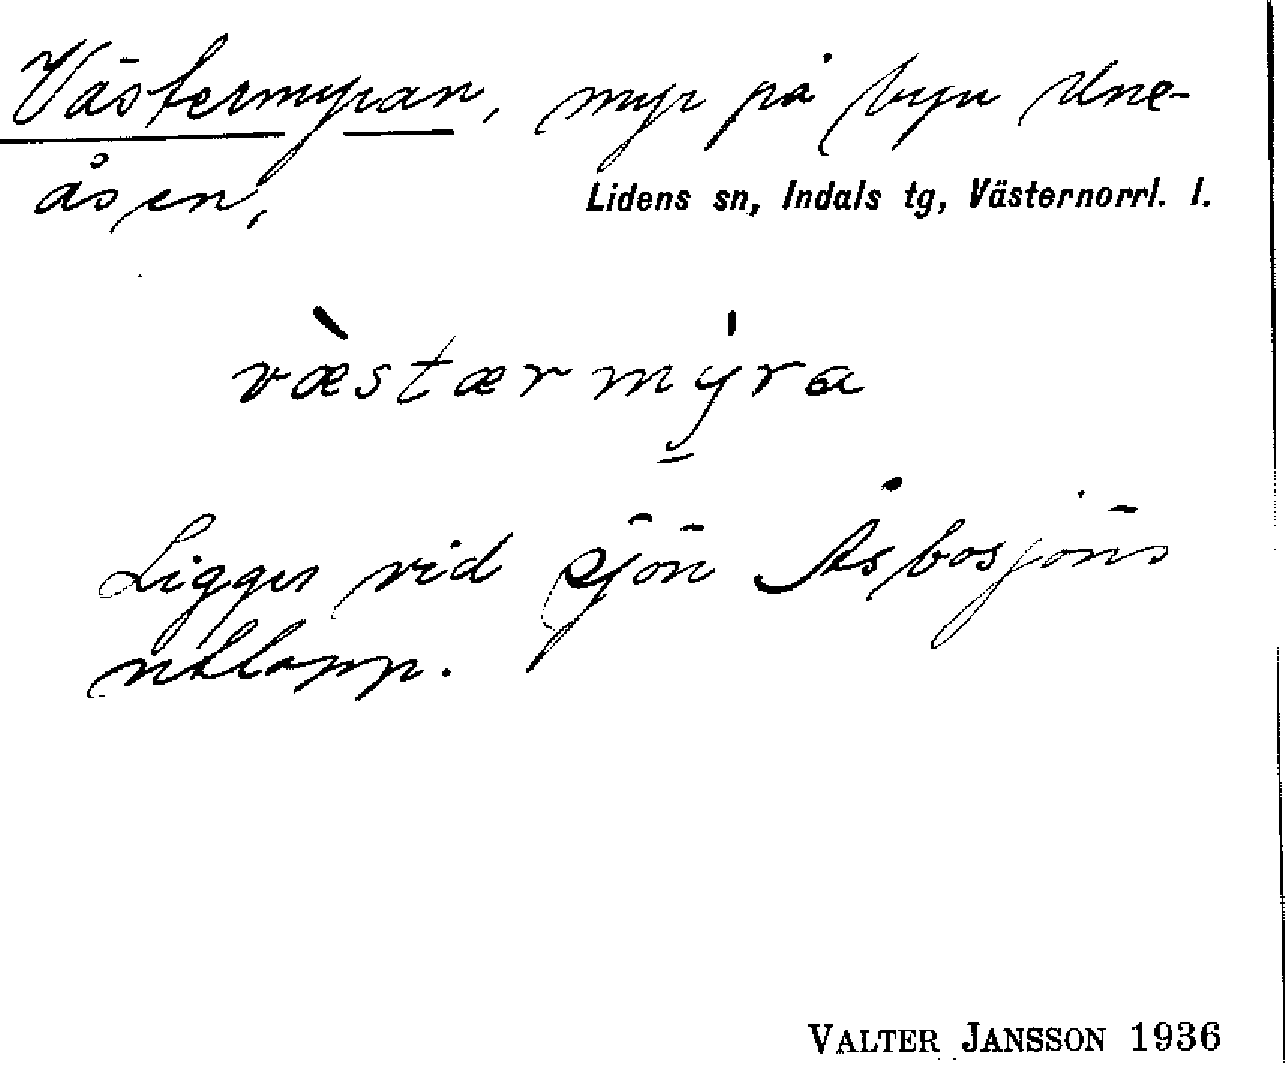 Västermyran, myr på byn Une-
åsen,
Lidens sn, Indals tg, Västernorrl. l.
væ̀stærmýra
Ligger vid sjön Åsbosjöns
utlopp.
VALTER JANSSON 1936